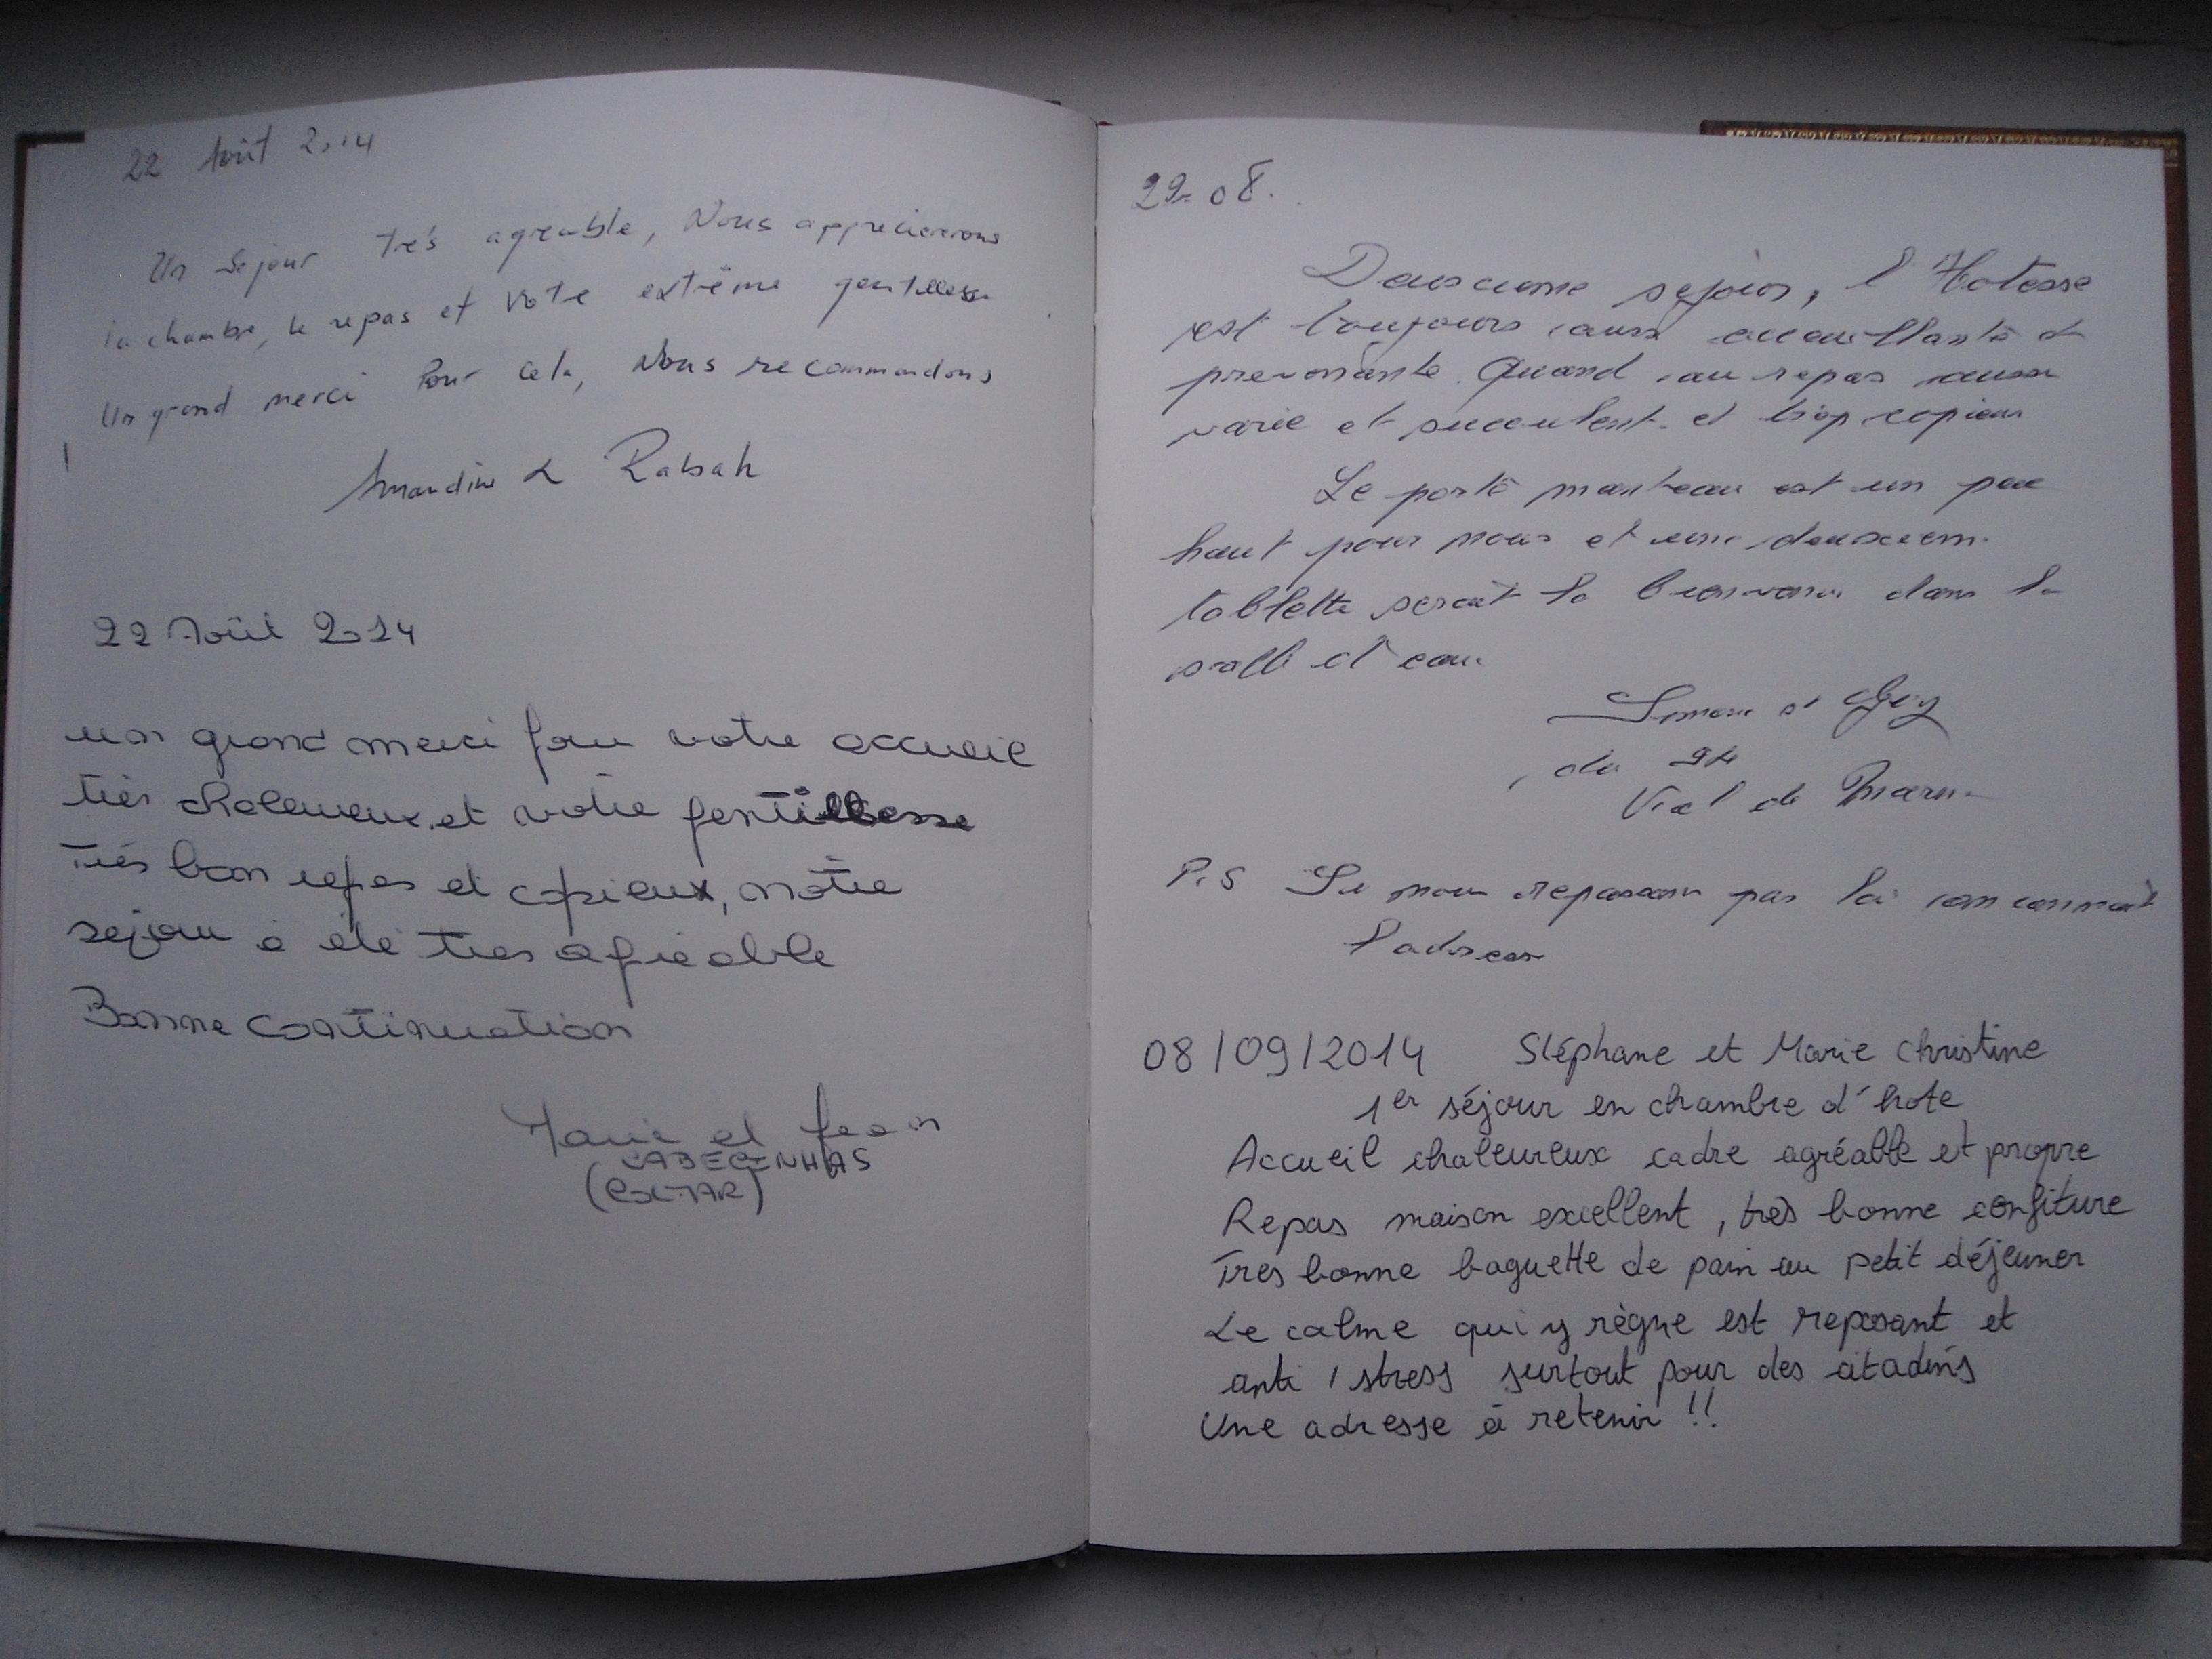 22 Août 2014
Un Sejour très agreable, Nous apprecierons
la chambre, le repas et votre extrême gentillesse
Un grand merci Pour cela, Nous recommandons
!
Amandine & Rabah
22 Août 2014
un grand merci pour votre accueil
très chaleureux et votre gentillesse
très bon repas et copieux, notre
sejour a été tres agreable
Bonne continuation
Marie et Jean
29-08.
Deuxieme sejour, l'Hotesse
est toujours aussi accueillante et
prevenante. Quand au repas aussi
varie et succulent et trop copieux
Le porte manteau est un peu
haut pour nous et une deuxiem
tablette serait la bienvenu dans la
salle d'eau
Simone et Guy
du 94
Val de Marne
P.S Si nous repassons par la on connait
l'adresse
08/09/2014 Stéphane et Marie Christine
1er séjour en chambre d'hote
Accueil chaleureux cadre agréable et propre
Repas maison excellent, très bonne confiture
Tres bonne baguette de pain au petit déjeuner
Le calme qui y règne est reposant et
anti / stress surtout pour des citadins
Une adresse à retenir !!